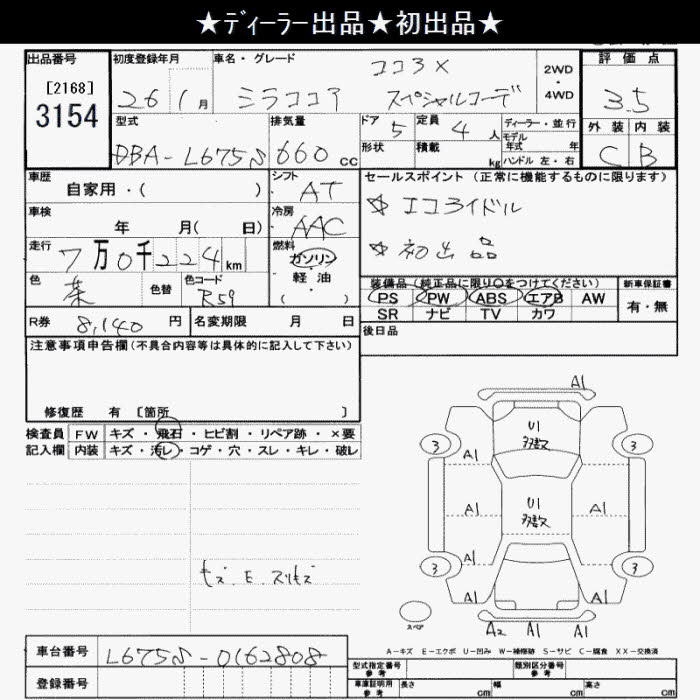 ★ディーラー出品★初出品★
出品番号
[2168]
3154
初度登録年月
26 1月
車名・グレード
ココアX
ミラココア スペシャルコーデ
2WD
・
4WD
評価点
3.5
外装 内装
C B
型式
DBA-L675S
排気量
660 cc
ドア
5
定員
4 人
形状
積載
kg
ディーラー・並行
モデル
年式 年
ハンドル 左・右
車歴
自家用・( )
シフト
AT
セールスポイント(正常に機能するものに限ります)
☆ エコアイドル
☆ 初出品
車検
年 月( 日)
冷房
AAC
走行
7万0千224km
燃料
ガソリン
軽油
( ・ )
色
茶
色替
色コード
R59
装備品(純正品に限り○をつけてください)
PS PW ABS エアB AW
SR ナビ TV カワ
新車保証書
有・無
R券 8,140 円
名変期限 月 日
後日品
注意事項申告欄(不具合内容等は具体的に記入して下さい)
修復歴 有 [箇所 ]
検査員 FW キズ・飛石・ヒビ割・リペア跡・×要
記入欄 内装 キズ・汚レ・コゲ・穴・スレ・キレ・破レ
A1
U1
多数
3 3
A1
U1
多数
A1 A1
A1
3 3
A1 A1
スペア
A2 A1 A1
A-キズ E-エクボ U-凹み W-補修跡 S-サビ C-腐食 XX-交換済
車台番号
L675S-0162808
登録番号
型式指定番号
参考
類別区分番号
参考
車庫証明用
参考
長さ cm 幅 cm 高さ cm